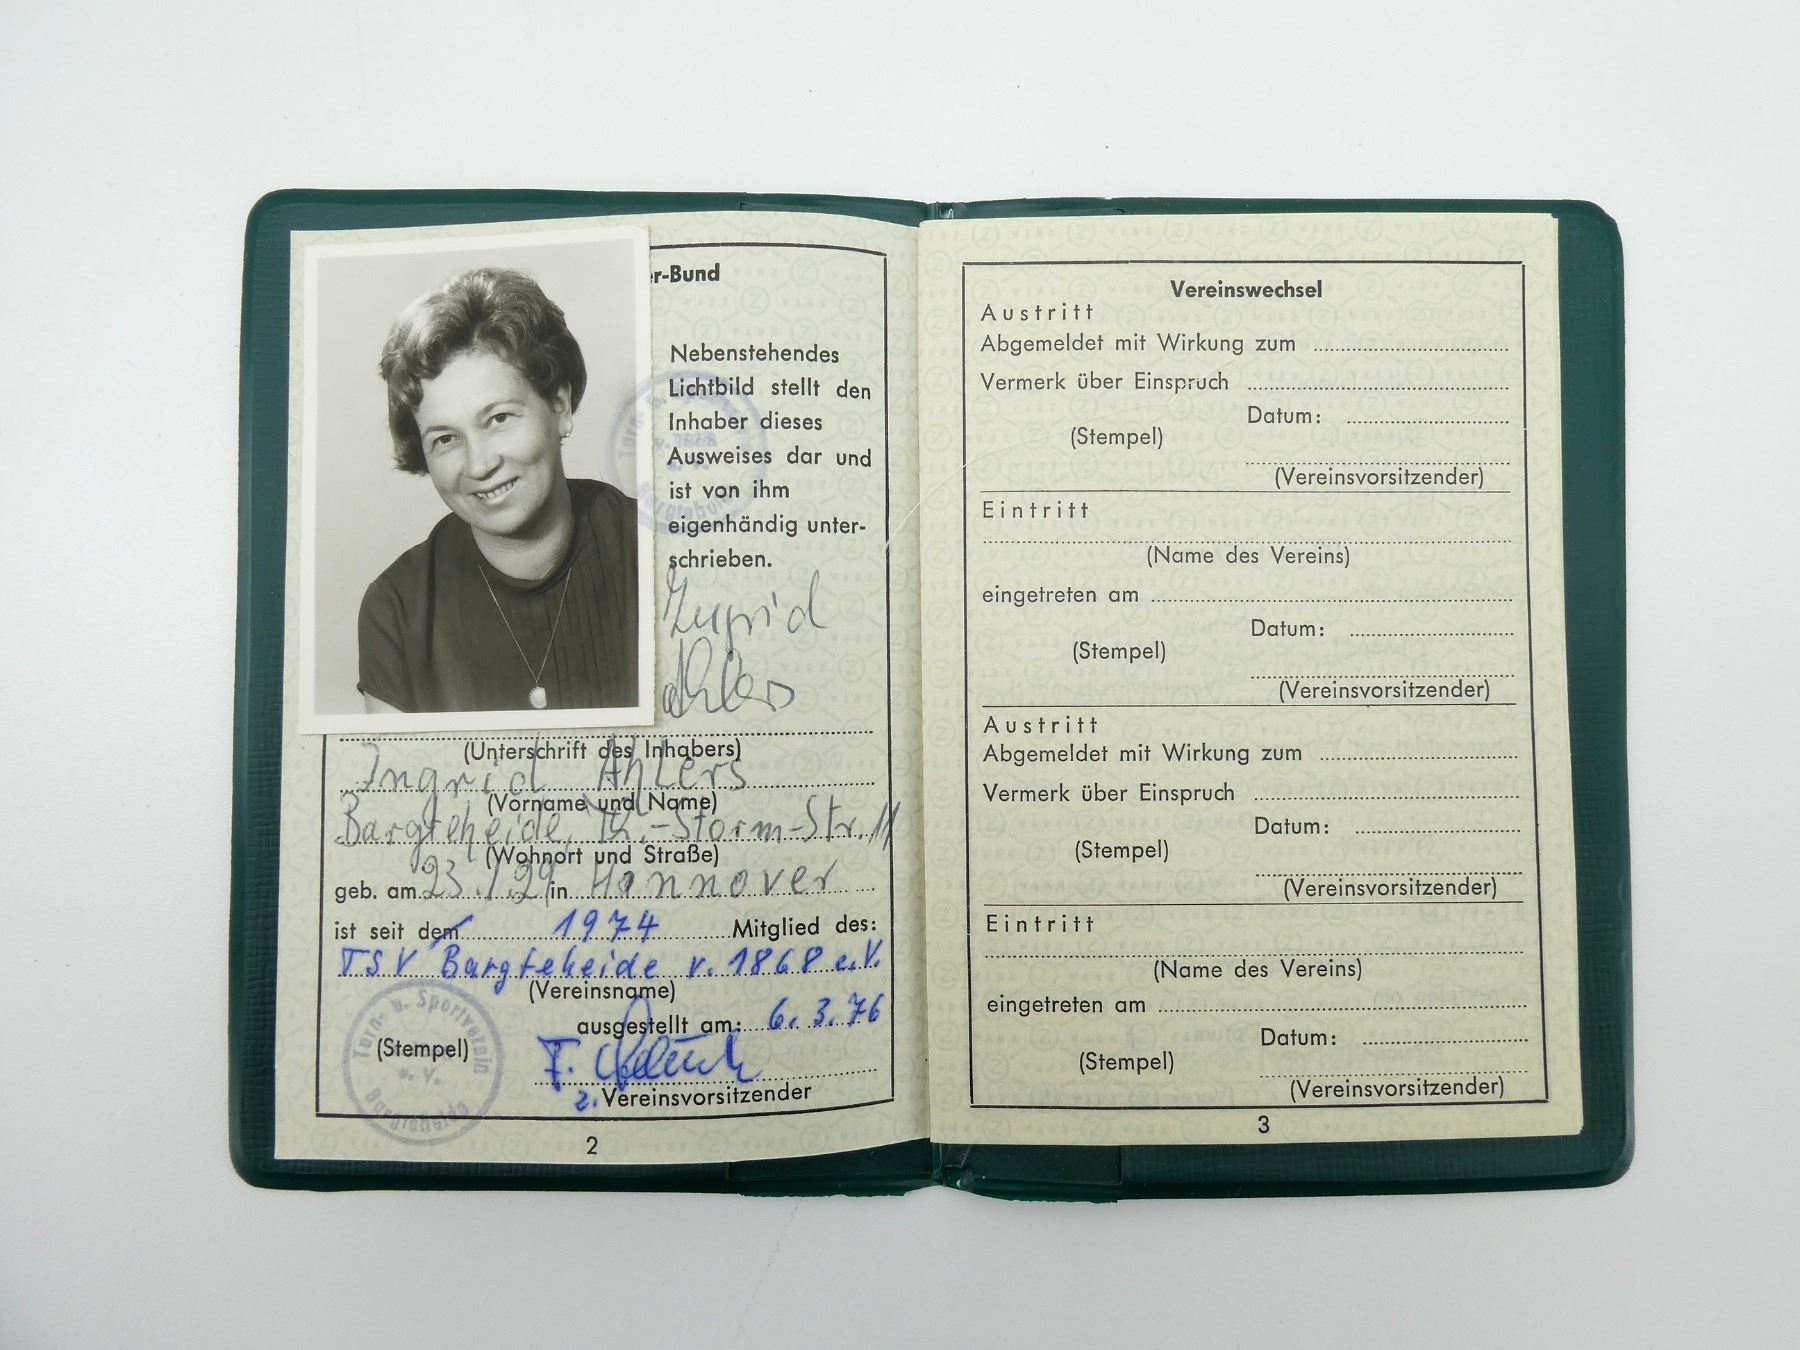 er-Bund
Nebenstehendes
Lichtbild stellt den
Inhaber dieses
Ausweises dar und
ist von ihm
eigenhändig unter-
schrieben.
Ingrid
Ahlers
(Unterschrift des Inhabers)
Ingrid Ahlers
(Vorname und Name)
Bargteheide, Th.-Storm-Str. 11
(Wohnort und Straße)
geb. am 23.1.29 in Hannover
ist seit dem 1974 Mitglied des:
TSV Bargteheide v. 1868 e.V.
(Vereinsname)
ausgestellt am: 6.3.76
(Stempel)
Turn- u. Sportverein
e. V.
Bargteheide
F.
2. Vereinsvorsitzender
2
Vereinswechsel
Austritt
Abgemeldet mit Wirkung zum
Vermerk über Einspruch
Datum:
(Stempel)
(Vereinsvorsitzender)
Eintritt
(Name des Vereins)
eingetreten am
Datum:
(Stempel)
(Vereinsvorsitzender)
Austritt
Abgemeldet mit Wirkung zum
Vermerk über Einspruch
Datum:
(Stempel)
(Vereinsvorsitzender)
Eintritt
(Name des Vereins)
eingetreten am
Datum:
(Stempel)
(Vereinsvorsitzender)
3